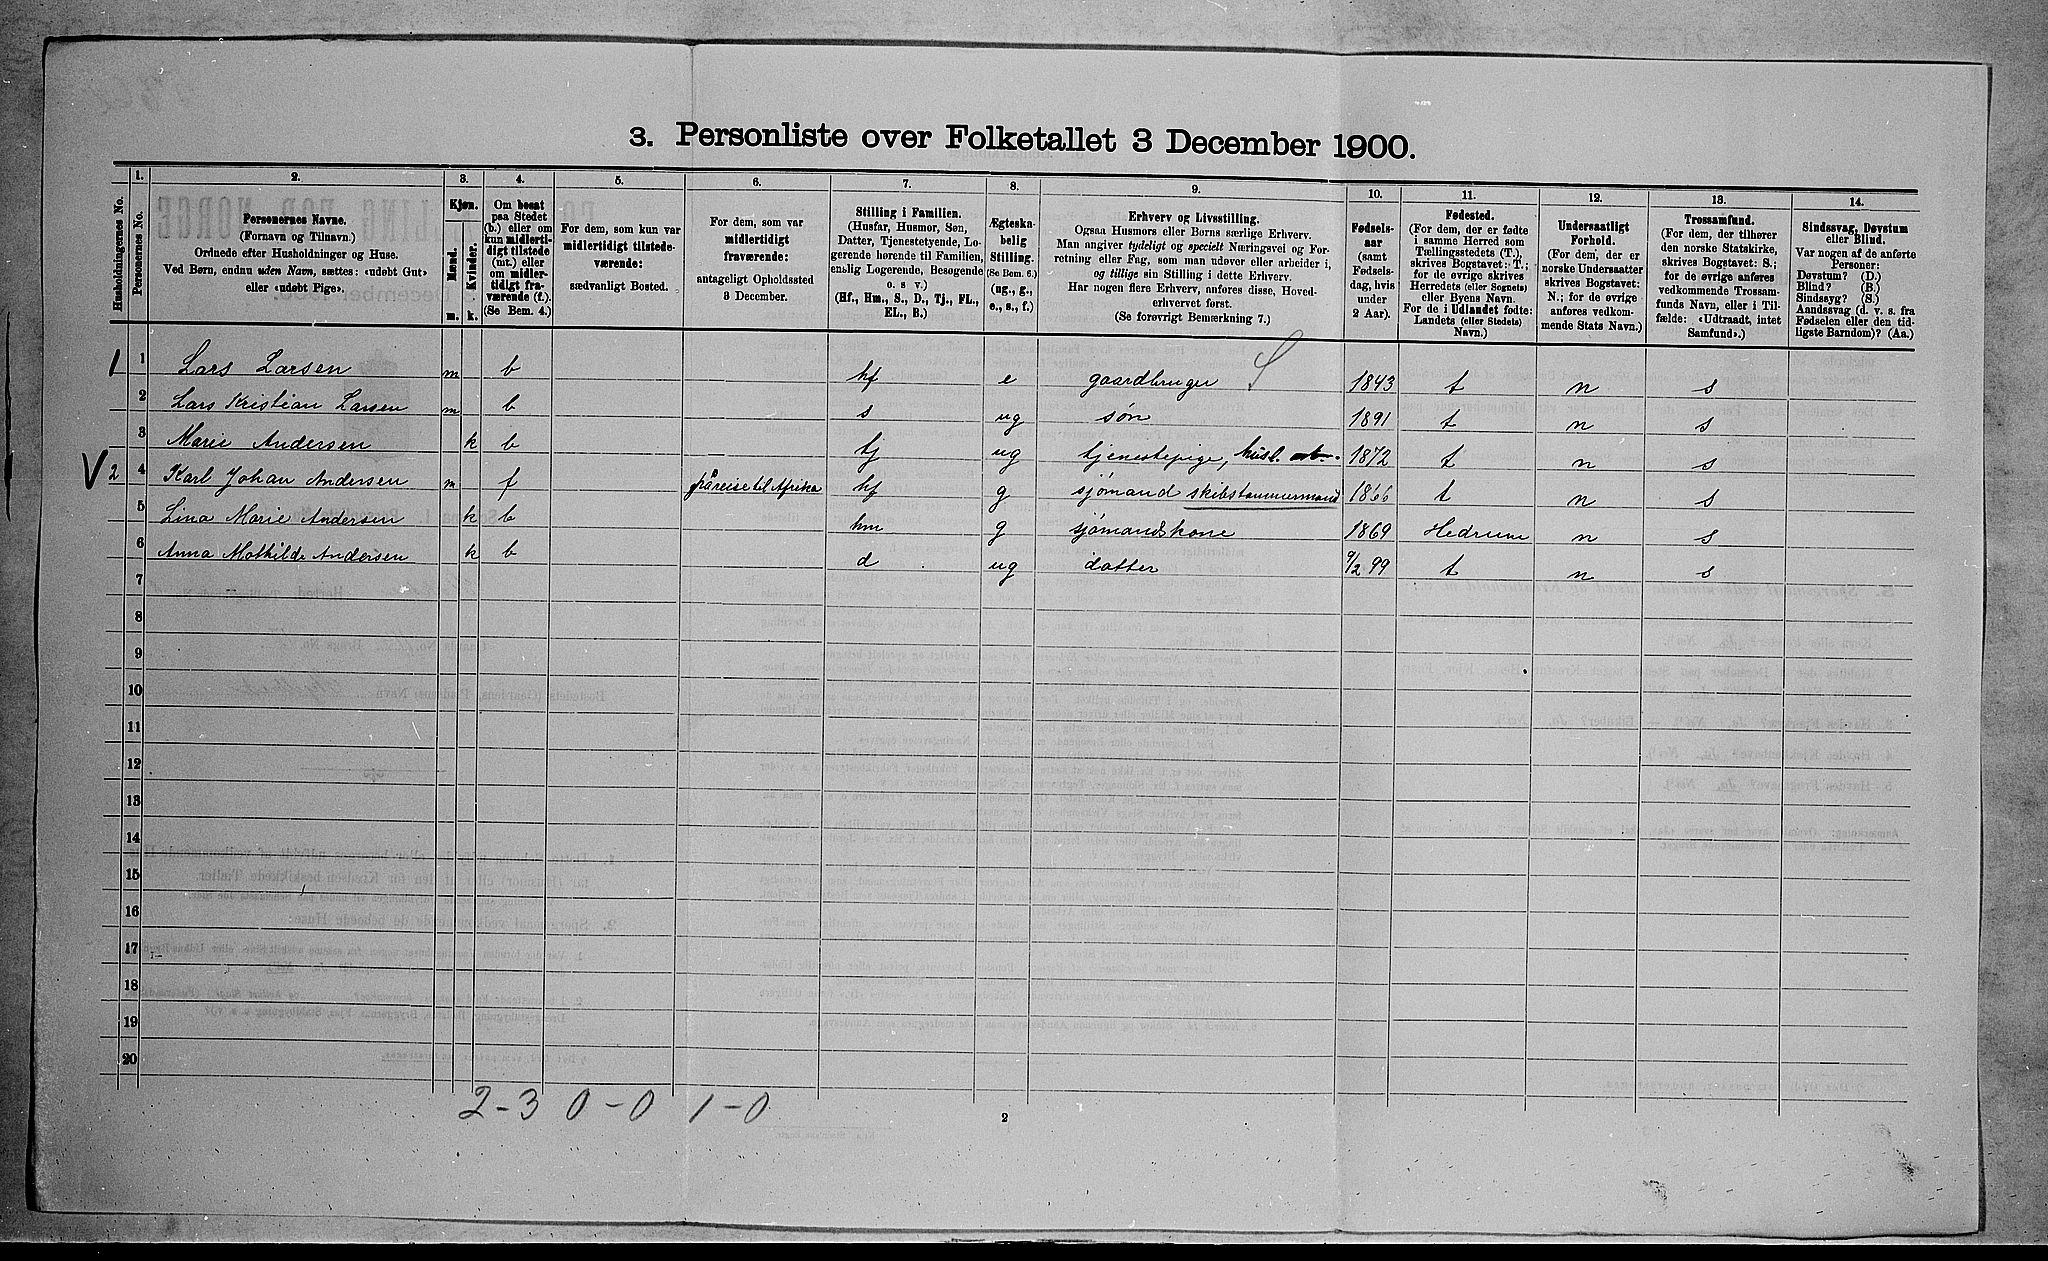 3. Personliste over Folketallet 3 December 1900.
Husholdningernes No.
1. Personernes No.
2. Personernes Navne.
(Fornavn og Tilnavn.)
Ordnede efter Husholdninger og Huse.
Ved Børn, endnu uden Navn, sættes: «udøbt Gut»
eller «udøbt Pige».
3. Kjøn.
Mænd. m.
Kvinder. k.
4. Om bosat
paa Stedet
(b.) eller om
kun midlerti-
digt tilstede
(mt.) eller
om midler-
tidigt fra-
værende (f.).
(Se Bem. 4.)
5. For dem, som kun var
midlertidigt tilstede-
værende:
sædvanligt Bosted.
6. For dem, som var
midlertidigt
fraværende:
antageligt Opholdssted
3 December.
7. Stilling i Familien.
(Husfar, Husmor, Søn,
Datter, Tjenestetyende, Lo-
gerende hørende til Familien,
enslig Logerende, Besøgende
o. s. v.)
(Hf., Hm., S., D., Tj., FL.,
EL., B.)
8. Ægteska-
belig
Stilling.
(Se Bem. 6.)
(ug., g.,
e., s., f.)
9. Erhverv og Livsstilling.
Ogsaa Husmors eller Børns særlige Erhverv.
Man angiver tydeligt og specielt Næringsvei og For-
retning eller Fag, som man udøver eller arbeider i,
og tillige sin Stilling i dette Erhverv.
Har nogen flere Erhverv, anføres disse, Hoved-
erhvervet først.
(Se forøvrigt Bemærkning 7.)
10. Fødsels-
aar
(samt
Fødsels-
dag, hvis
under
2 Aar).
11. Fødested.
(For dem, der er fødte
i samme Herred som
Tællingsstedets (T.),
skrives Bogstavet: T.;
for de øvrige skrives
Herredets (eller Sognets)
eller Byens Navn.
For de i Udlandet fødte:
Landets (eller Stedets)
Navn.)
12. Undersaatligt
Forhold.
(For dem, der er
norske Undersaatter
skrives Bogstavet:
N.; for de øvrige
anføres vedkom-
mende Stats Navn.)
13. Trossamfund.
(For dem, der tilhører
den norske Statskirke,
skrives Bogstavet: S.;
for de øvrige anføres
vedkommende Trossam-
funds Navn, eller i Til-
fælde: «Udtraadt, intet
Samfund».)
14. Sindssvag, Døvstum
eller Blind.
Var nogen af de anførte
Personer:
Døvstum? (D.)
Blind? (B.)
Sindssyg? (S.)
Aandssvag (d. v. s. fra
Fødselen eller den tid-
ligste Barndom)? (Aa.)
1 1 Lars Larsen m b hf e gaardbruger S 1843 t n s
2 Lars Kristian Larsen m b s ug søn 1891 t n s
3 Marie Andersen k b tj ug tjenestepige, husl. arb. 1872 t n s
V 2 4 Karl Johan Andersen m f på reise til Afrika hf g sjømand skibstømmermand 1866 t n s
5 Lina Marie Andersen k b hm g sjømandskone 1869 Hedrum n s
6 Anna Mathilde Andersen k b d ug datter 9/2 99 t n s
7
8
9
10
11
12
13
14
15
16
17
18
19
20
2-3 0-0 1-0
2